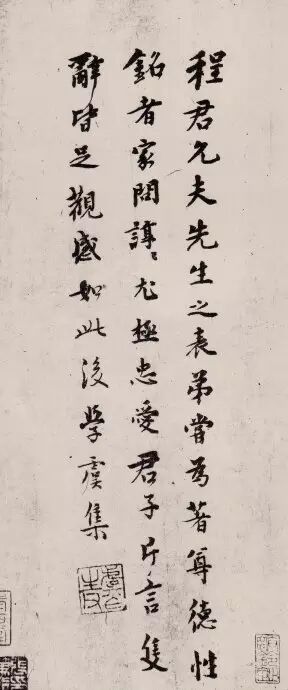 程君允夫先生之表弟嘗為著尊德性
銘者家問諄〻尤極忠愛君子片言隻
辭皆足觀感如此後學虞集